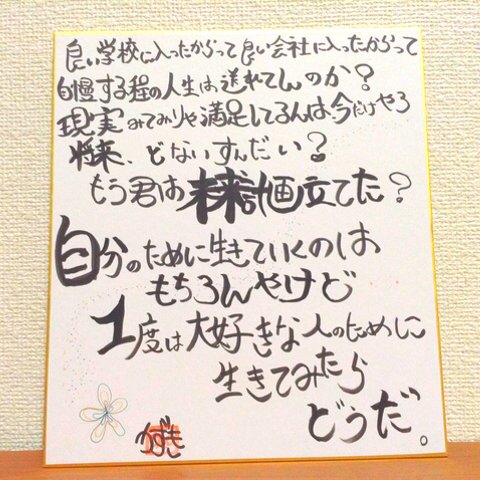 良い学校に入ったからって良い会社に入ったからって
自慢する程の人生は送れてんのか？
現実みてみりゃ満足してるんは、今だけやろ
将来、どないすんだい？
もう君は未来計画立てた？
自分のために生きていくのは
もちろんやけど
1度は大好きな人のために
生きてみたら
どうだ。
かずき